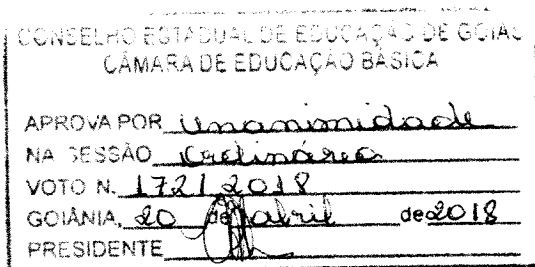 CONSELHO ESTADUAL DE EDUCAÇÃO DE GOIÁS
CÂMARA DE EDUCAÇÃO BÁSICA
APROVA POR Unanimidade
NA SESSÃO Ordinária
VOTO N. 172/2018
GOIÂNIA, 20 de abril de 2018
PRESIDENTE